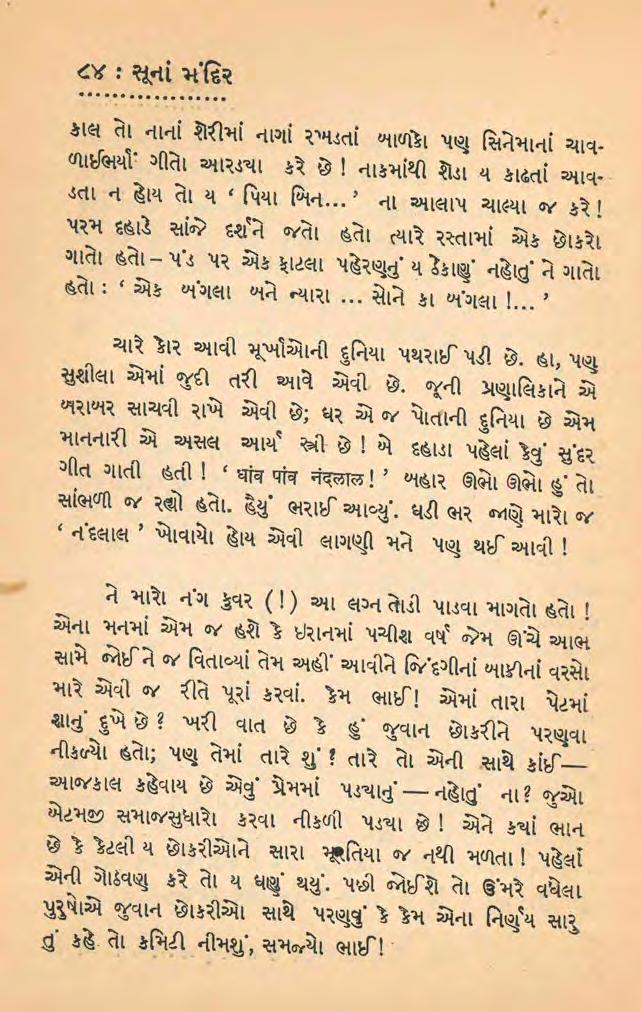 ૮૪ : સૂનાં મંદિર
કાલ તો નાનાં શેરીમાં નાગાં રખડતાં બાળકો પણ સિનેમાનાં ચાવ-
ળાઈભર્યાં ગીતો આરડ્યા કરે છે ! નાકમાંથી શેડા ય કાઢતાં આવ-
ડતા ન હોય તો ય ‘ પિયા બિન... ’ ના આલાપ ચાલ્યા જ કરે !
પરમ દહાડે સાંજે દર્શને જતો હતો ત્યારે રસ્તામાં એક છોકરો
ગાતો હતો – પંડ પર એક ફાટલા પહેરણનું ય ઠેકાણું નહોતું ને ગાતો
હતો : ‘ એક બંગલા બને ન્યારા ... સોને કા બંગલા !... ’
ચારે કોર આવી મૂર્ખાઓની દુનિયા પથરાઈ પડી છે. હા, પણ
સુશીલા એમાં જુદી તરી આવે એવી છે. જૂની પ્રણાલિકાને એ
બરાબર સાચવી રાખે એવી છે; ઘર એ જ પોતાની દુનિયા છે એમ
માનનારી એ અસલ આર્ય સ્ત્રી છે ! બે દહાડા પહેલાં કેવું સુંદર
ગીત ગાતી હતી ! ‘ घांव पांव नंदलाल ! ’ બહાર ઊભો ઊભો હું તો
સાંભળી જ રહ્યો હતો. હૈયું ભરાઈ આવ્યું. ઘડી ભર જાણે મારો જ
‘ નંદલાલ ’ ખોવાયો હોય એવી લાગણી મને પણ થઈ આવી !
ને મારો નંગ કુવર (!) આ લગ્ન તોડી પાડવા માગતો હતો !
એના મનમાં એમ જ હશે કે ઇરાનમાં પચીશ વર્ષ જેમ ઊંચે આભ
સામે જોઈને જ વિતાવ્યાં તેમ અહીં આવીને જિંદગીનાં બાકીનાં વરસો
મારે એવી જ રીતે પૂરાં કરવાં. કેમ ભાઈ! એમાં તારા પેટમાં
શાનું દુખે છે? ખરી વાત છે કે હું જુવાન છોકરીને પરણવા
નીકળ્યો હતો; પણ તેમાં તારે શું? તારે તો એની સાથે કાંઈ—
આજકાલ કહેવાય છે એવું પ્રેમમાં પડ્યાનું — નહોતું ના? જુઓ
એટમજી સમાજસુધારો કરવા નીકળી પડ્યા છે! એને ક્યાં ભાન
છે કે કેટલી ય છોકરીઓને સારા મૂરતિયા જ નથી મળતા! પહેલાં
એની ગોઠવણ કરે તો ય ઘણું થયું. પછી જોઈશે તો ઉંમરે વધેલા
પુરુષોએ જુવાન છોકરીઓ સાથે પરણવું કે કેમ એના નિર્ણય સારુ
તું કહે તો કમિટી નીમશું, સમજ્યો ભાઈ!